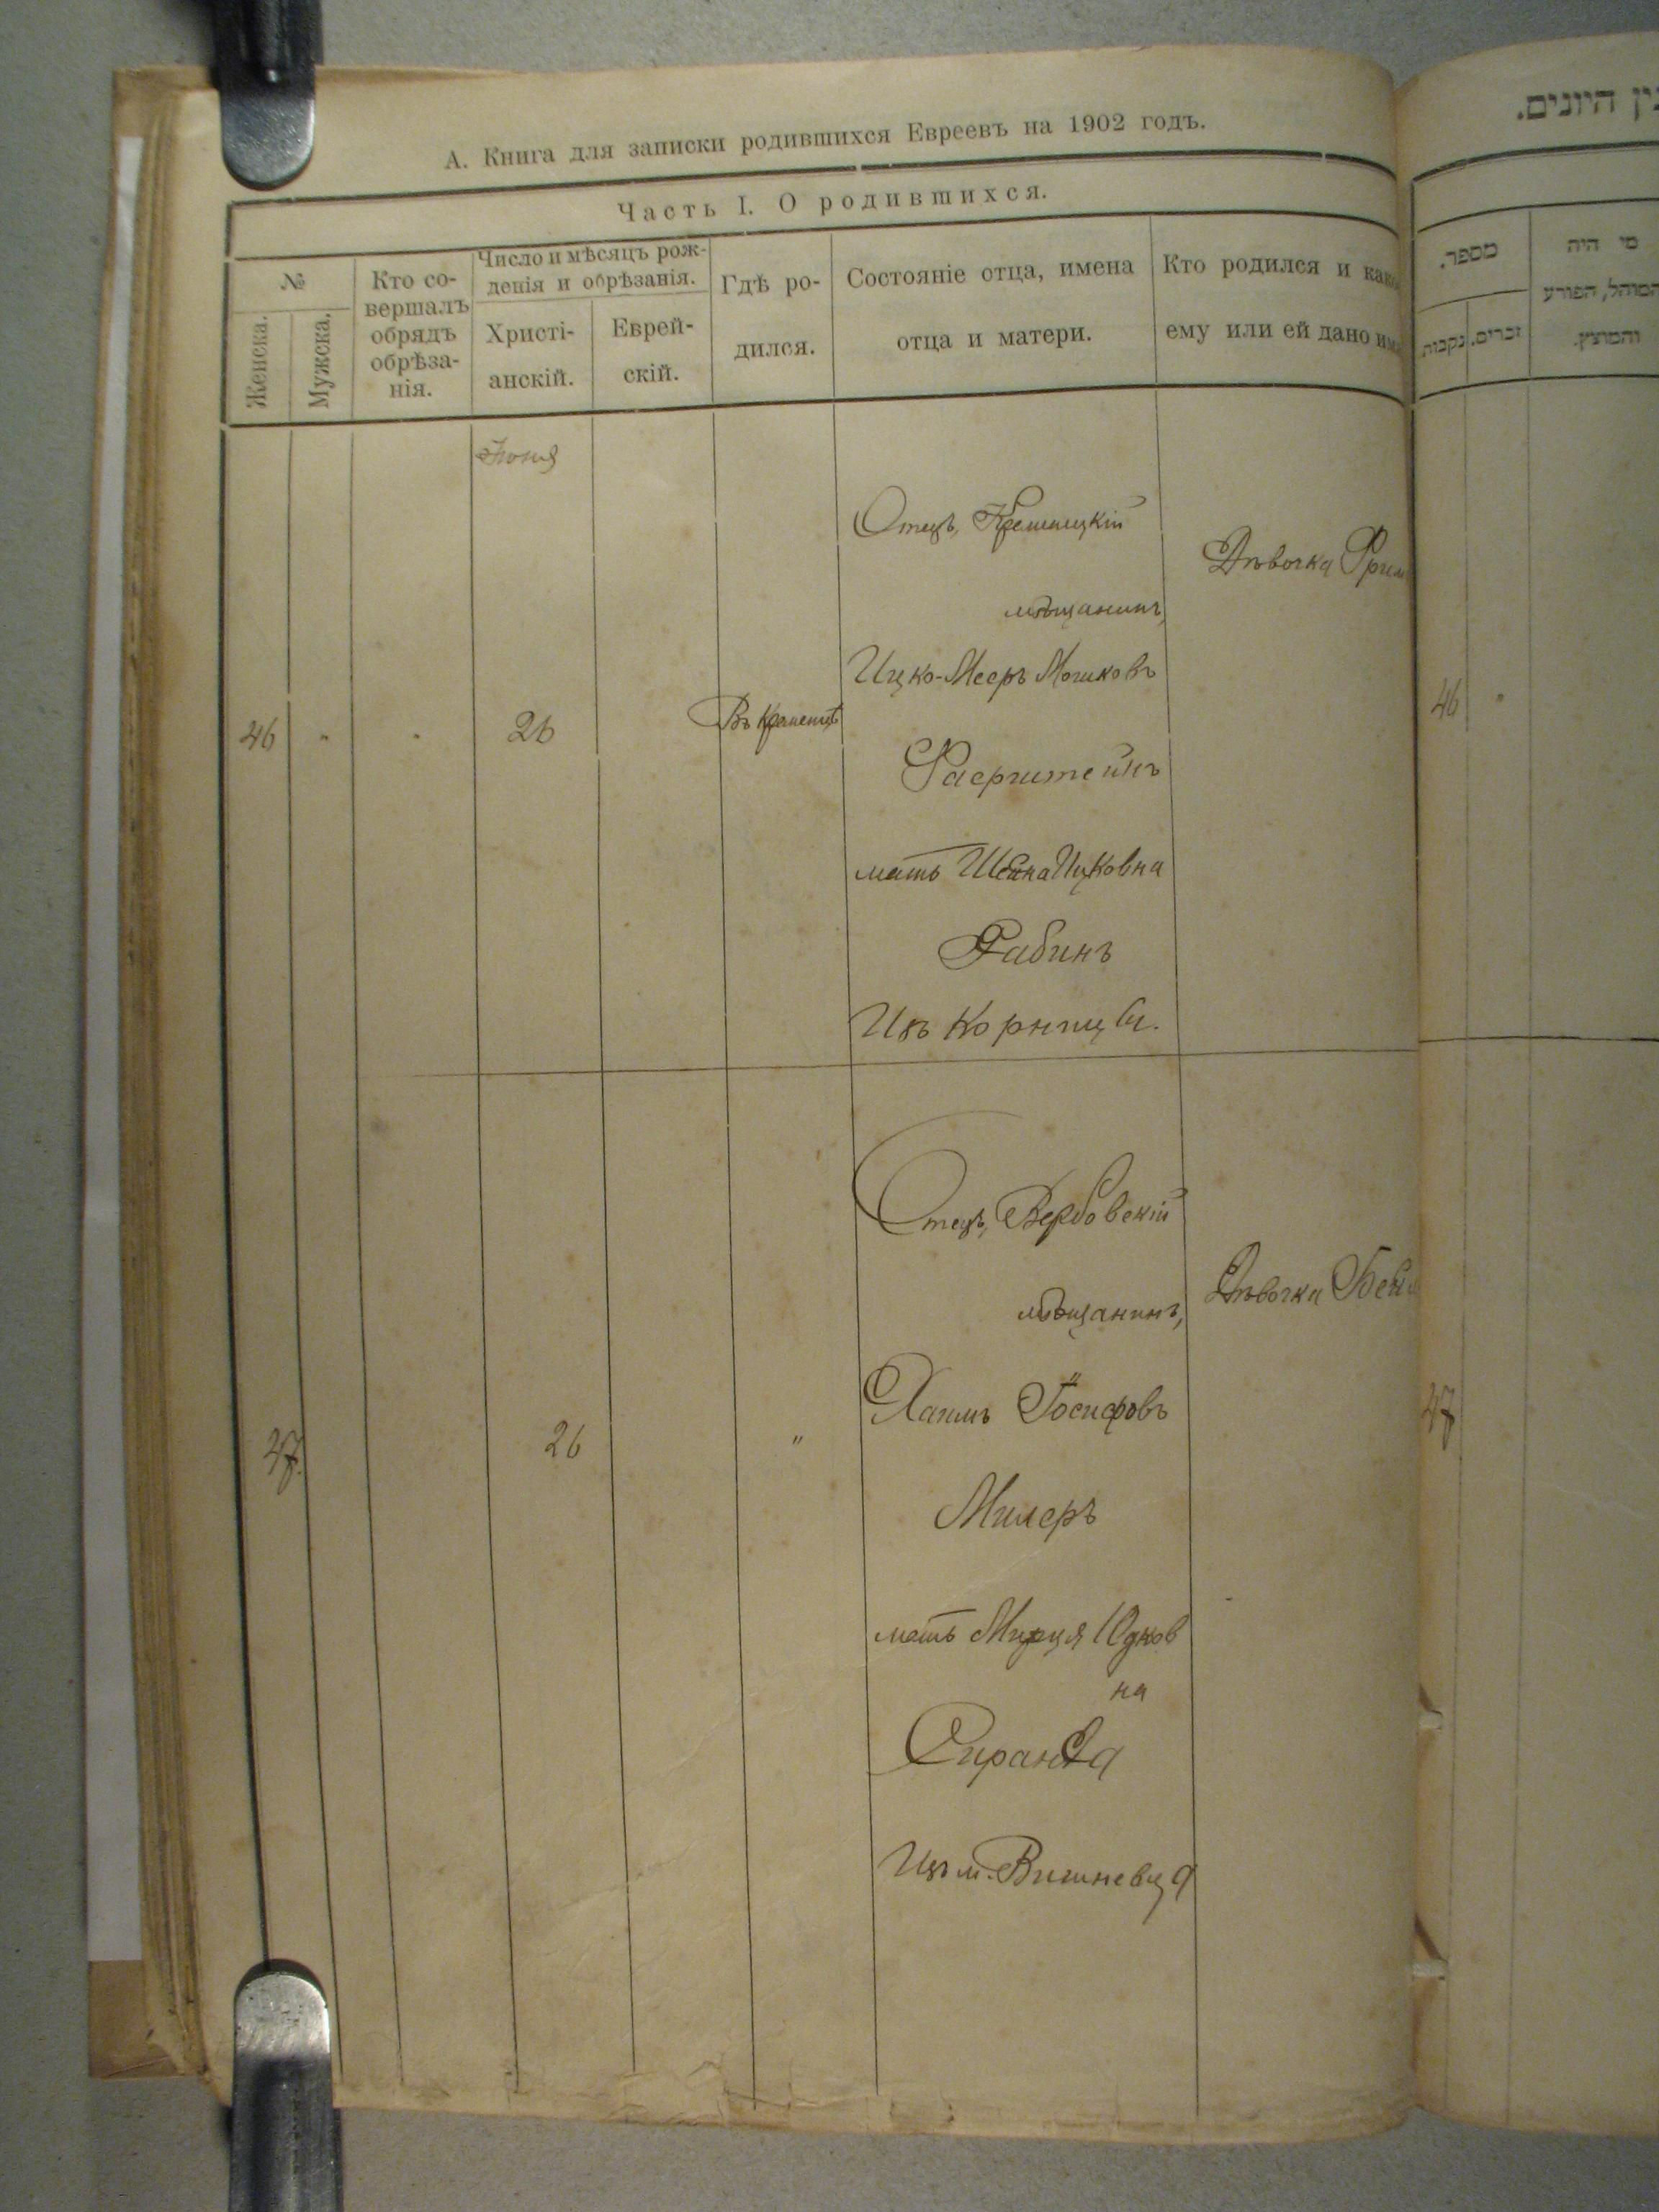 А. Книга для записки родившихся Евреевъ на 1902 годъ.
Часть I. О родившихся.
№
Женска.
Мужска.
Кто со-
вершалъ
обрядъ
обрѣза-
нія.
Число и мѣсяцъ рож-
денія и обрѣзанія.
Христі-
анскій.
Еврей-
скій.
Гдѣ ро-
дился.
Состояніе отца, имена
отца и матери.
Кто родился и како
ему или ей дано им
Іюня
46
"
"
26
Въ Кременцѣ
Отецъ, Кременецкій
мѣщанинъ,
Ицко-Мееръ Мошковъ
Фаерштейнъ
мать Шейна Ицковна
Рабинъ
Изъ Корницы.
Дѣвочка
47.
26
"
Отецъ, Вербовскій
мѣщанинъ,
Хаимъ Іосифовъ
Милеръ
мать Юдков
на
Изъ м. Вишневца
Дѣвочка
ין היונים.
מספר.
נקבות.
זכרים.
מי היה
המוהל, הפורע
והמוצץ.
46
"
47